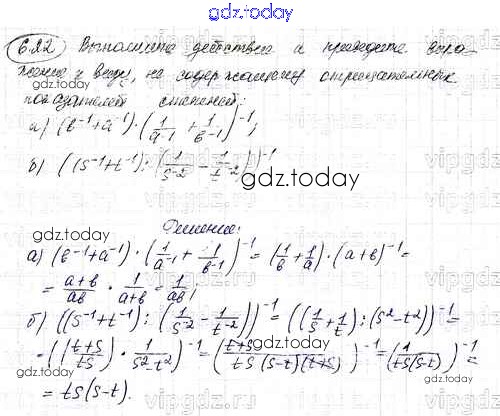 gdz.today
6.22 Выполните действия и приведите выра-
жение к виду, не содержащему отрицательных
показателей степеней:
gdz.today
а) (b⁻¹+a⁻¹)·(1/a⁻¹ + 1/b⁻¹)⁻¹;
б) ((s⁻¹+t⁻¹):(1/s⁻² − 1/t⁻²))⁻¹
gdz.today
Решение:
gdz.today
а) (b⁻¹+a⁻¹)·(1/a⁻¹ + 1/b⁻¹)⁻¹ = (1/b + 1/a)·(a+b)⁻¹ =
= (a+b)/ab · 1/(a+b) = 1/ab;
gdz.today
б) ((s⁻¹+t⁻¹):(1/s⁻² − 1/t⁻²))⁻¹ = ((1/s + 1/t):(s²−t²))⁻¹ =
= ((t+s)/ts · 1/(s²−t²))⁻¹ = ((t+s)/(ts(s−t)(t+s)))⁻¹ = (1/(ts(s−t)))⁻¹ =
= ts(s−t).
gdz.today
gdz.today